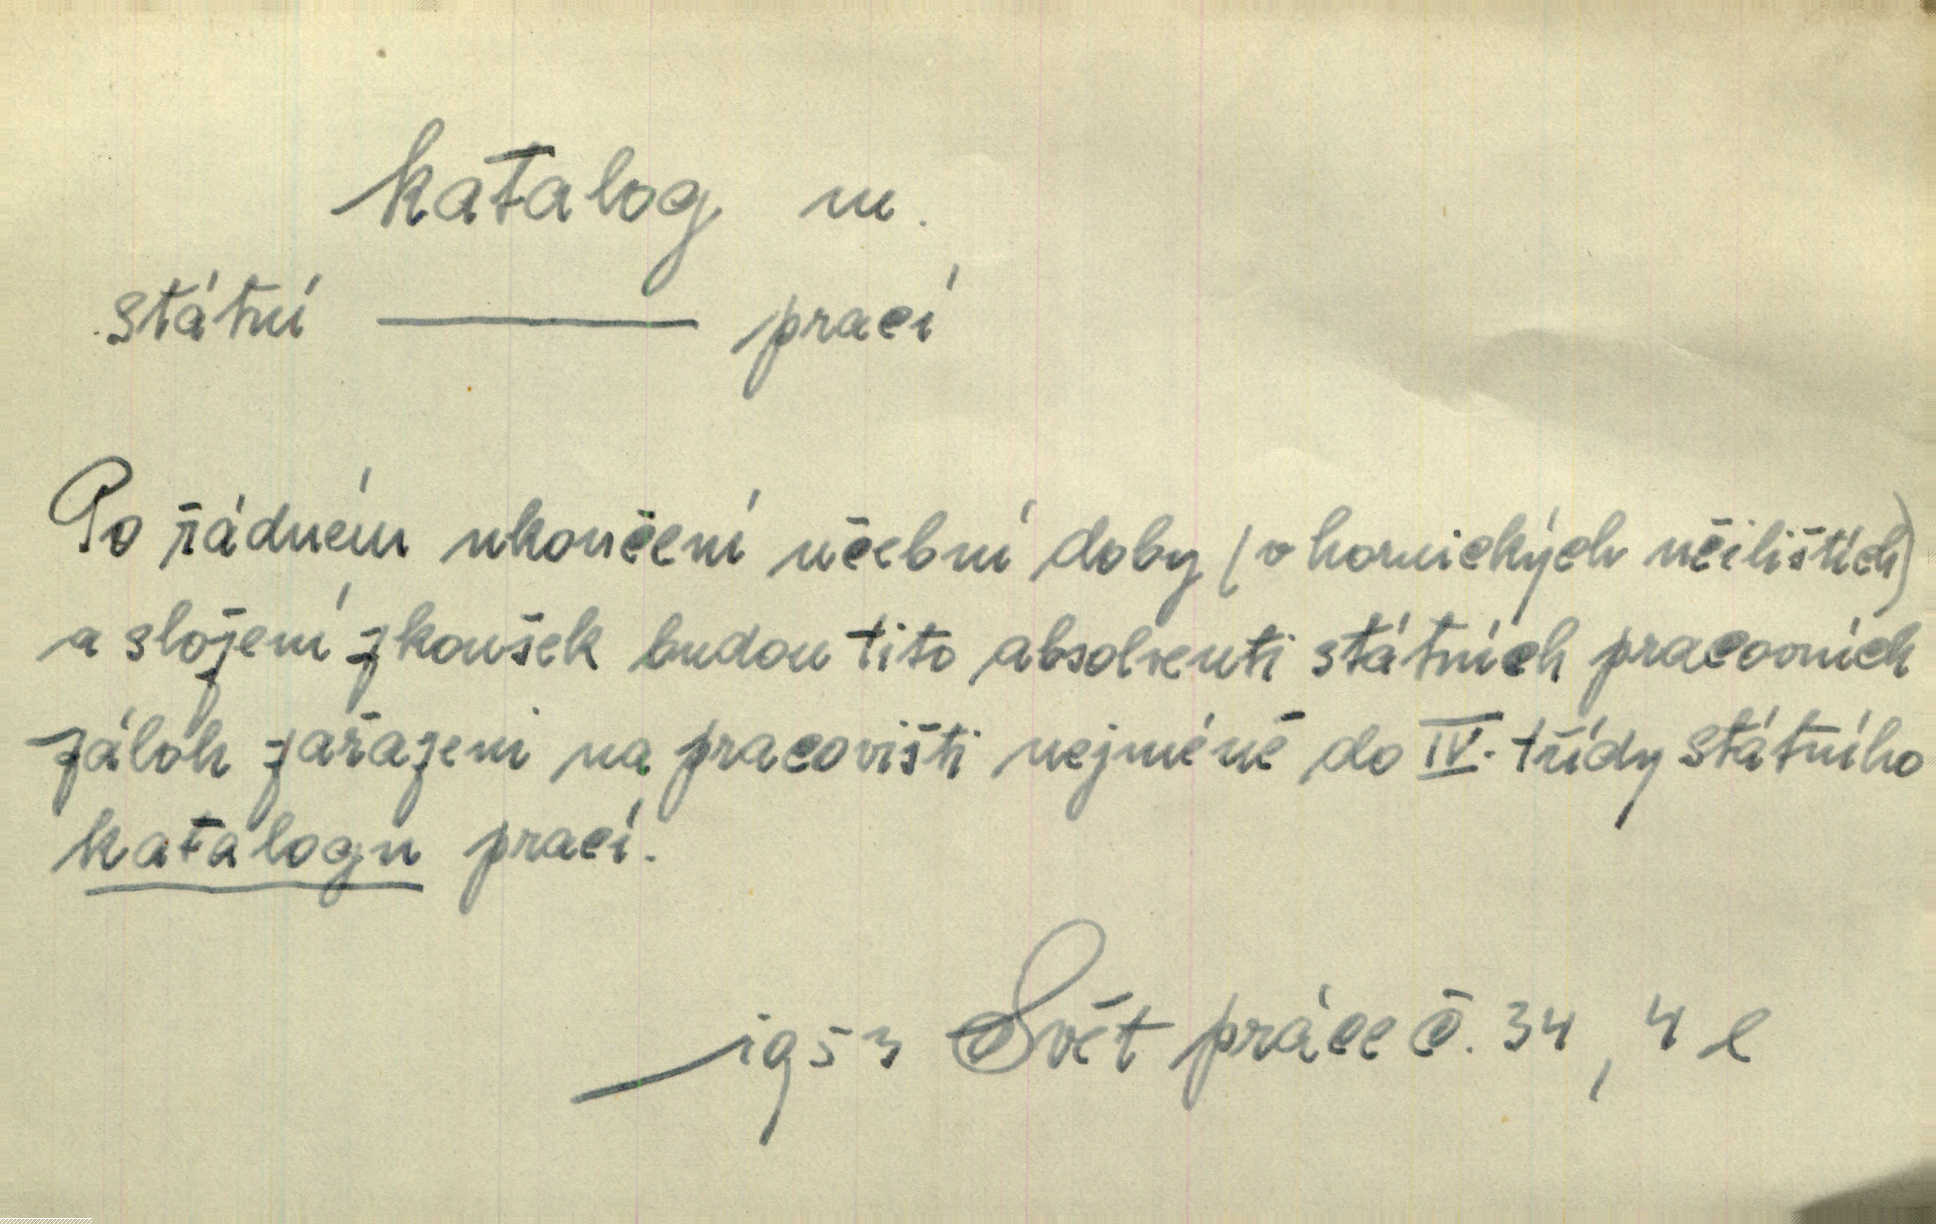 katalog m.
státní ——— prací
Po řádném ukončení učební doby (v hornických učilištích)
a složení zkoušek budou tito absolventi státních pracovních
záloh zařazeni na pracovišti nejméně do IV. třídy státního
katalogu prací.
1953 Svět práce č. 34, 4 e